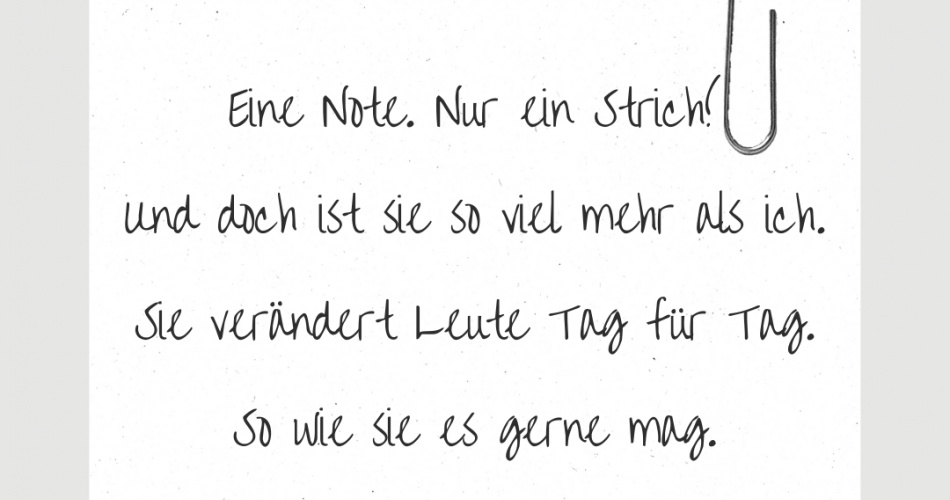 Eine Note. Nur ein Strich!
und doch ist sie so viel mehr als ich.
Sie verändert Leute Tag für Tag.
So wie sie es gerne mag.